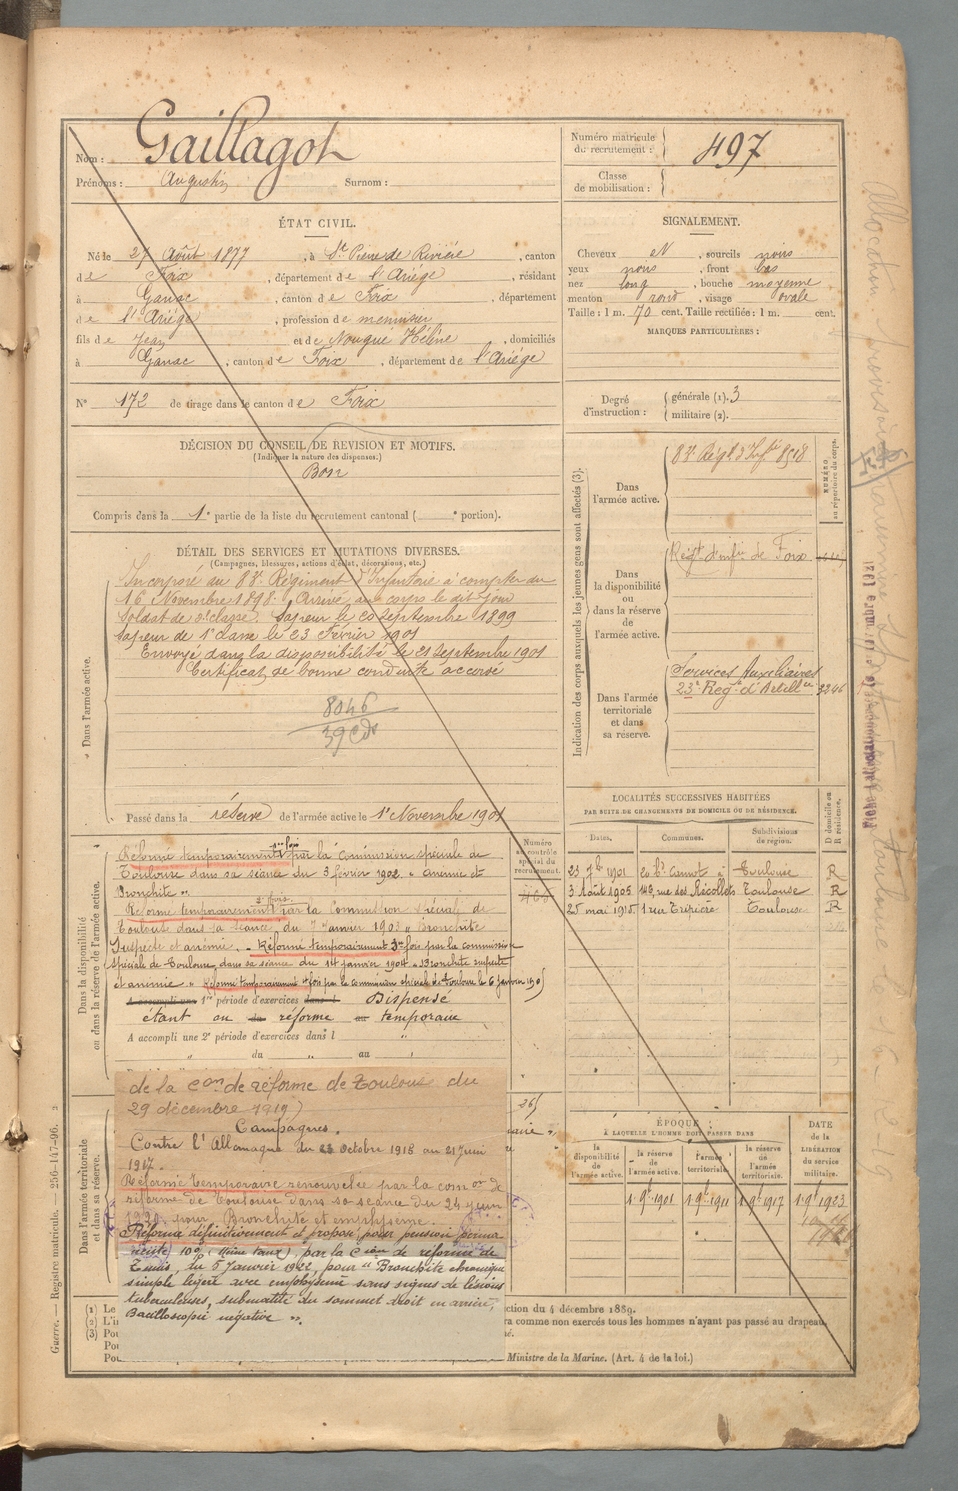 Nom : Gaillagot
Prénoms : Augustin Surnom :
Numéro matricule du recrutement : 497
Classe de mobilisation :
ÉTAT CIVIL.
Né le 27 Août 1877, à St. Pierre de Rivière, canton
de Foix, département de l'Ariège, résidant
à Ganac, canton de Foix, département
de l'Ariège, profession de menuisier
fils de Jean et de Nougué Hélène, domiciliés
à Ganac, canton de Foix, département de l'Ariège
N° 172 de tirage dans le canton de Foix
SIGNALEMENT.
Cheveux et N, sourcils noirs
yeux noirs, front bas
nez long, bouche moyenne
menton rond, visage ovale
Taille : 1 m. 70 cent. Taille rectifiée : 1 m. cent.
MARQUES PARTICULIÈRES :
Degré d'instruction : générale (1). 3
militaire (2).
DÉCISION DU CONSEIL DE REVISION ET MOTIFS.
(Indiquer la nature des dispenses.)
Bon
Compris dans la 1e partie de la liste du recrutement cantonal ( e portion).
DÉTAIL DES SERVICES ET MUTATIONS DIVERSES.
(Campagnes, blessures, actions d'éclat, décorations, etc.)
Dans l'armée active.
Incorporé au 83e Régiment d'Infanterie à compter du
16 Novembre 1898. Arrivé au corps le dit jour
Soldat de 2e classe. Sapeur le 20 Septembre 1899
Sapeur de 1e classe le 23 Février 1901
Envoyé dans la disponibilité le 21 Septembre 1901
Certificat de bonne conduite accordé
8046
Passé dans la réserve de l'armée active le 1e Novembre 1901
Indication des corps auxquels les jeunes gens sont affectés (3).
NUMÉRO au répertoire du corps.
Dans l'armée active.
83e Régt d'Infie 8518
Dans la disponibilité ou dans la réserve de l'armée active.
Régt d'infie de Foix
Dans l'armée territoriale et dans sa réserve.
Services Auxiliaires
23e Regt d'Artillie
LOCALITÉS SUCCESSIVES HABITÉES
PAR SUITE DE CHANGEMENTS DE DOMICILE OU DE RÉSIDENCE.
Dates. Communes. Subdivisions de région. D domicile ou R résidence.
23 7bre 1901 20 Bd Carnot à Toulouse R
3 Août 1905 149, rue des Récollets Toulouse R
25 mai 1915 1 rue Tripière Toulouse R
Dans la disponibilité ou dans la réserve de l'armée active.
Numéro au contrôle spécial du recrutement.
Réformé temporairement 1ere fois par la Commission spéciale de
Toulouse dans sa séance du 3 février 1902 "Anémie et
Bronchite".
Réformé temporairement 2e fois par la Commission spéciale de
Toulouse dans sa séance du 7 Janvier 1903 "Bronchite
Suspecte et anémie". Réformé temporairement 3me fois par la commission
spéciale de Toulouse, dans sa séance du 14 janvier 1904 "Bronchite suspecte
et anémie". Réformé temporairement fois par la Commission spéciale de Toulouse le 6 janvier 190
A accompli une 1re période d'exercices dans l Dispensé
étant au du réforme au temporaire
A accompli une 2e période d'exercices dans l
du au
Dans l'armée territoriale et dans sa réserve.
de la Con de réforme de Toulouse du
29 décembre 1919)
Campagnes.
Contre l'Allemagne du Octobre 1918 au 21 Juin
1917.
Réforme temporaire renouvelée par la comon de
réforme de Toulouse dans sa séance du 24 juin
1920 pour Bronchite et emphysème.
Réformé définitivement et proposé pour pension perma
nente) 10% (même taux), par la Cion de réforme de
Tunis, du 5 Janvier 1922, pour "Bronchite chronique
simple légère avec emphysème sans signes de lésions
tuberculeuses, submatité du sommet droit en arrière,
Bacilloscopie négative".
ÉPOQUE
À LAQUELLE L'HOMME DOIT PASSER DANS
la disponibilité de l'armée active.
la réserve de l'armée active.
l'armée territoriale.
la réserve de l'armée territoriale.
DATE de la LIBÉRATION du service militaire.
1 9bre 1901 1 9bre 1911 1 9bre 1917 1 9bre 1923
(1) Le
(2) L'in
(3) Pou
Pou
Pou
ction du 4 décembre 1889.
ra comme non exercés tous les hommes n'ayant pas passé au drapeau.
Ministre de la Marine. (Art. 4 de la loi.)
Guerre. — Registre matricule. — 256-147-96.